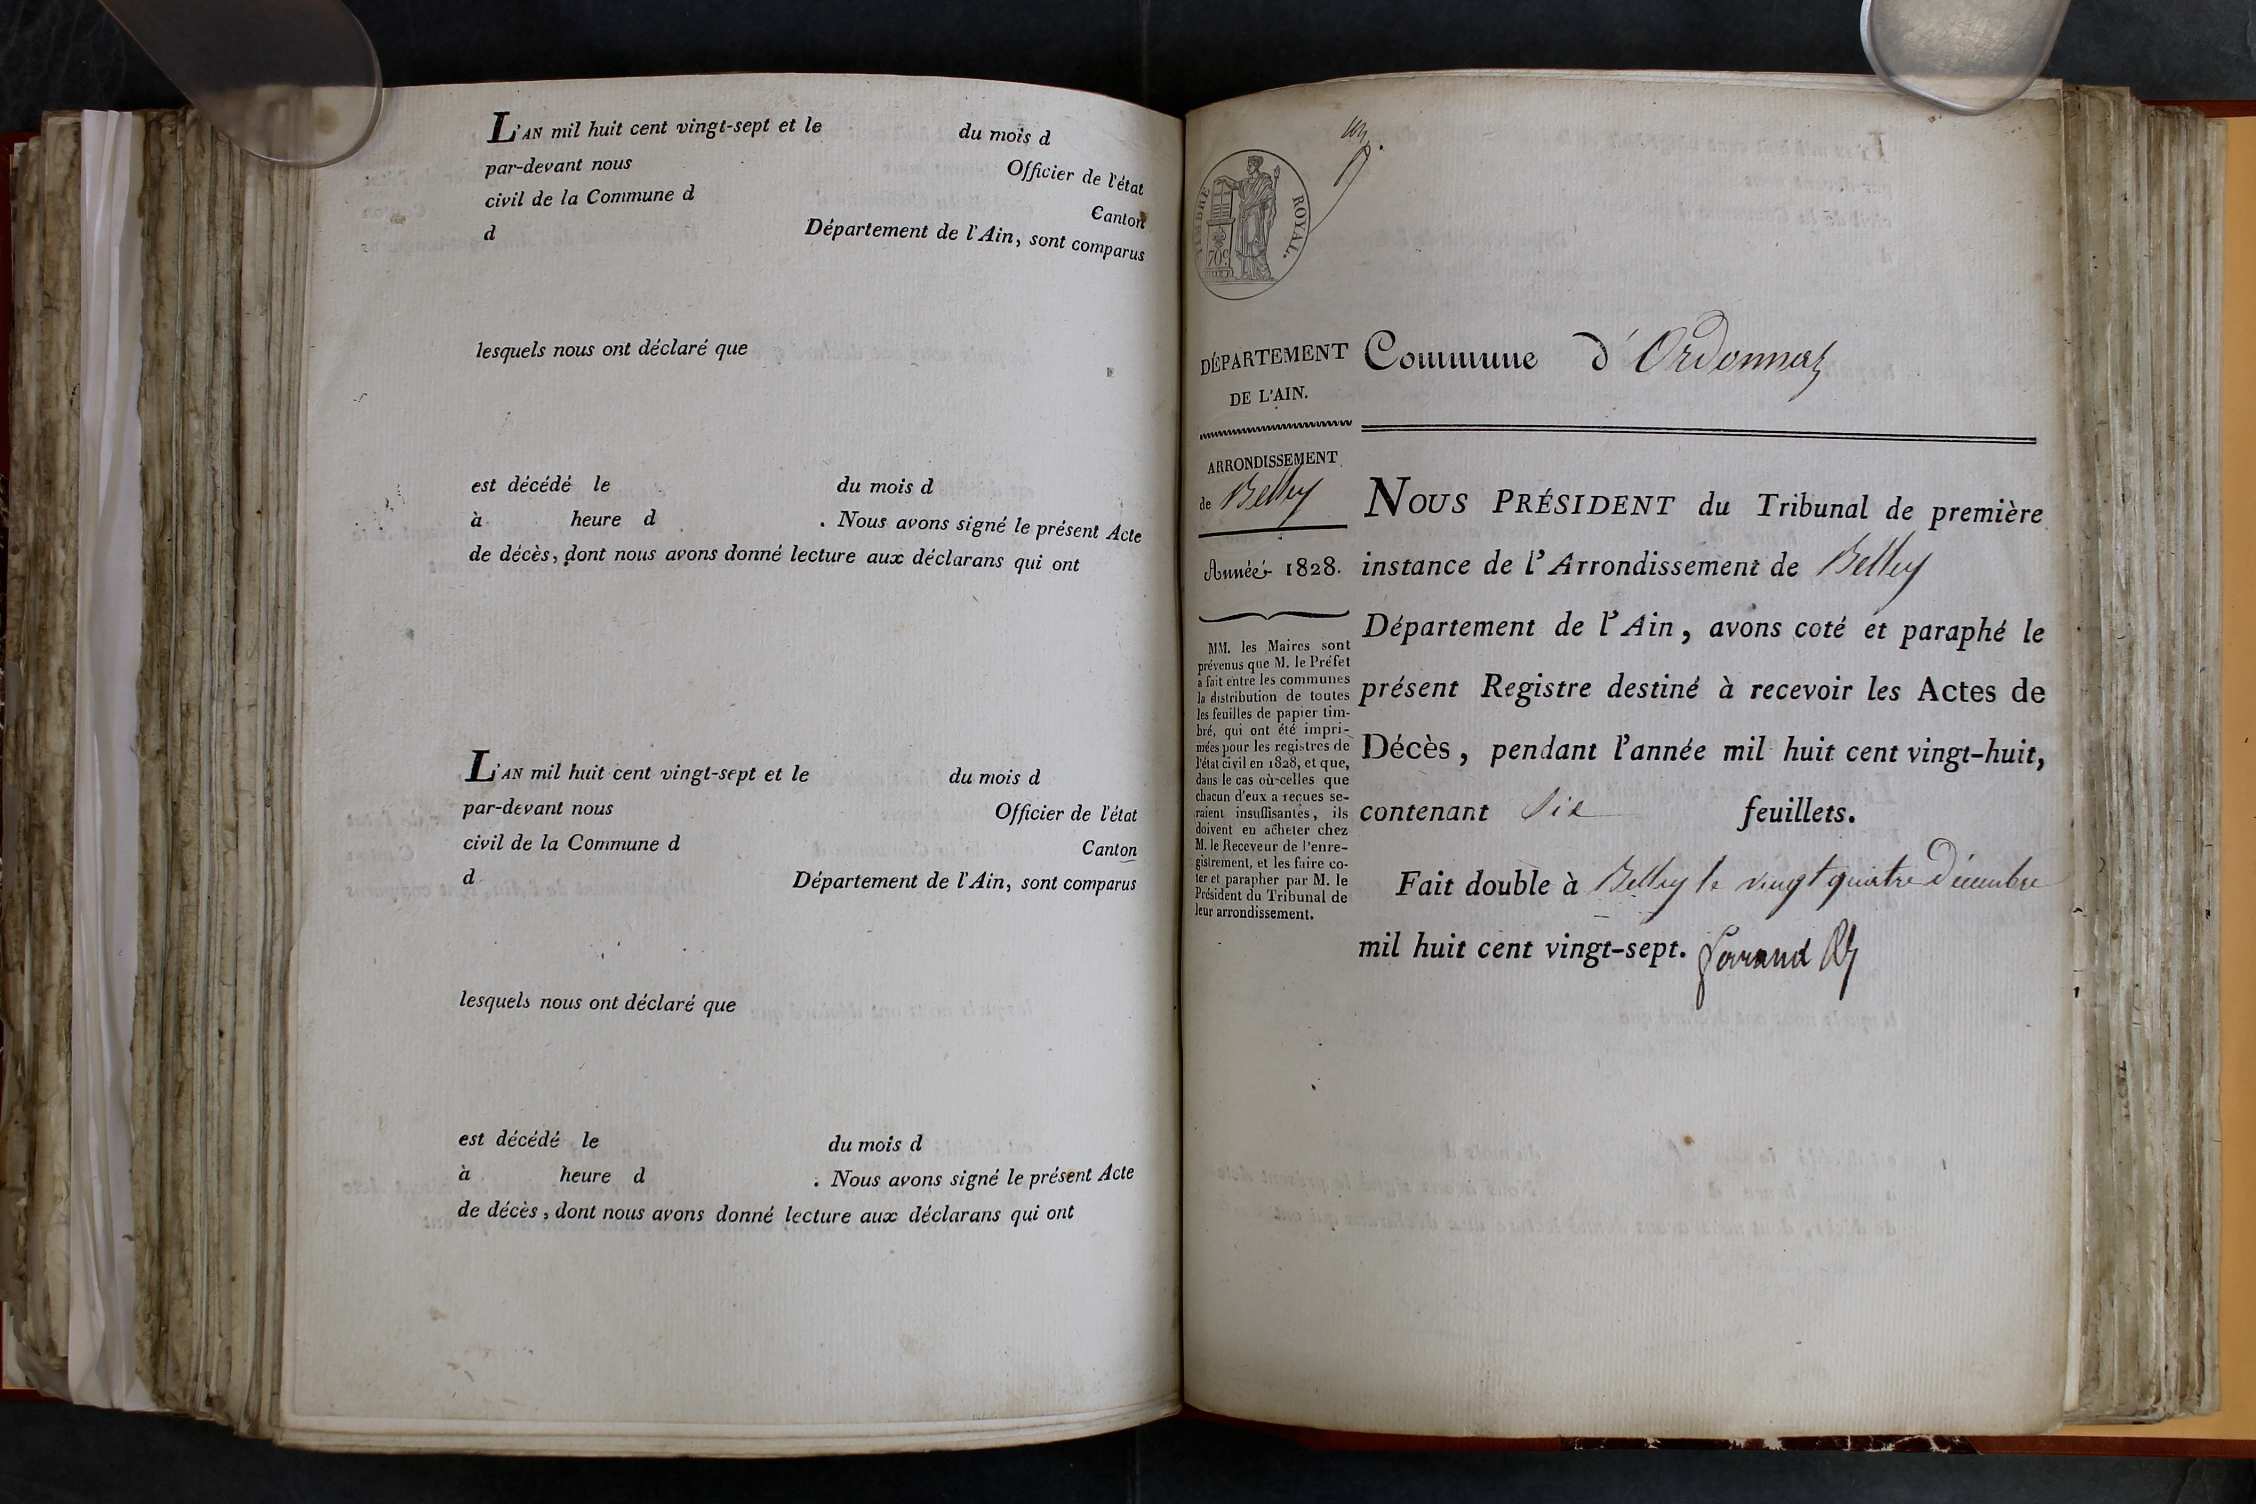 L'AN mil huit cent vingt-sept et le du mois d
par-devant nous Officier de l'état
civil de la Commune d Canton
d Département de l'Ain, sont comparus
lesquels nous ont déclaré que
est décédé le du mois d
à heure d . Nous avons signé le présent Acte
de décès, dont nous avons donné lecture aux déclarans qui ont
L'AN mil huit cent vingt-sept et le du mois d
par-devant nous Officier de l'état
civil de la Commune d Canton
d Département de l'Ain, sont comparus
lesquels nous ont déclaré que
est décédé le du mois d
à heure d . Nous avons signé le présent Acte
de décès, dont nous avons donné lecture aux déclarans qui ont
TIMBRE ROYAL.
70c
DÉPARTEMENT
DE L'AIN.
ARRONDISSEMENT
de Belley
Année 1828.
MM. les Maires sont
prévenus que M. le Préfet
a fait entre les communes
la distribution de toutes
les feuilles de papier tim-
bré, qui ont été impri-
mées pour les registres de
l'état civil en 1828, et que,
dans le cas où celles que
chacun d'eux a reçues se-
raient insuffisantes, ils
doivent en acheter chez
M. le Receveur de l'enre-
gistrement, et les faire co-
ter et parapher par M. le
Président du Tribunal de
leur arrondissement.
Commune d'Ordonnaz
NOUS PRÉSIDENT du Tribunal de première
instance de l'Arrondissement de Belley
Département de l'Ain, avons coté et paraphé le
présent Registre destiné à recevoir les Actes de
Décès, pendant l'année mil huit cent vingt-huit,
contenant Six feuillets.
Fait double à Belley le vingt quatre Décembre
mil huit cent vingt-sept.